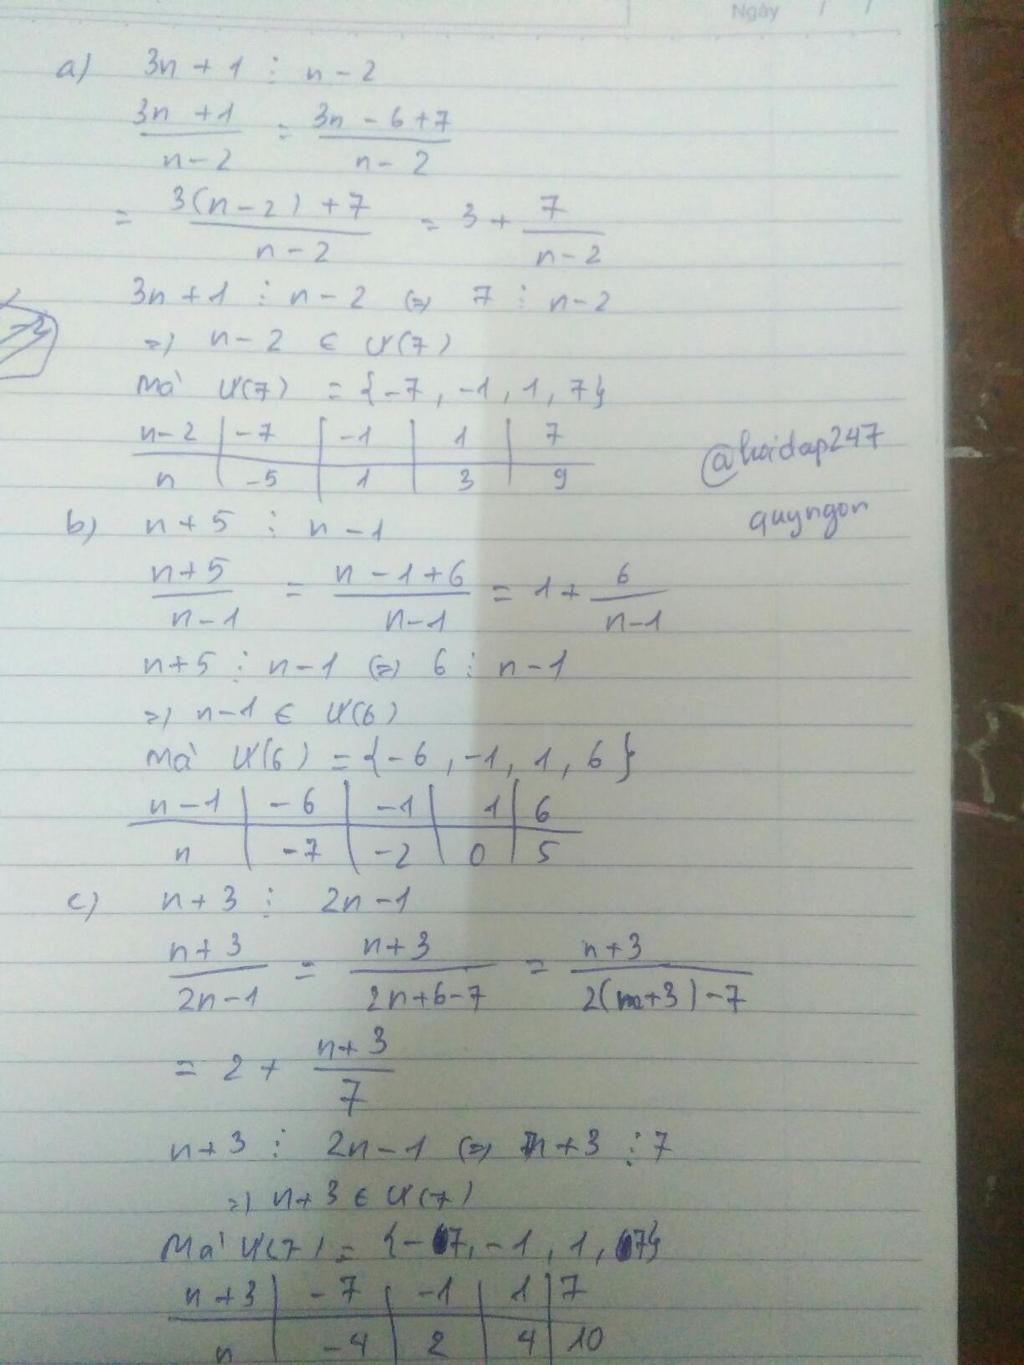 Ngày / /
a) 3n + 1 ⋮ n - 2
(3n + 1)/(n - 2) = (3n - 6 + 7)/(n - 2)
= (3(n - 2) + 7)/(n - 2) = 3 + 7/(n - 2)
3n + 1 ⋮ n - 2 (=) 7 ⋮ n - 2
=) n - 2 ∈ Ư(7)
Mà Ư(7) = {-7, -1, 1, 7}
n - 2 | -7 | -1 | 1 | 7
n | -5 | 1 | 3 | 9
@hoidap247
quyngon
b) n + 5 ⋮ n - 1
(n + 5)/(n - 1) = (n - 1 + 6)/(n - 1) = 1 + 6/(n - 1)
n + 5 ⋮ n - 1 (=) 6 ⋮ n - 1
=) n - 1 ∈ Ư(6)
Mà Ư(6) = {-6, -1, 1, 6}
n - 1 | -6 | -1 | 1 | 6
n | -7 | -2 | 0 | 5
c) n + 3 ⋮ 2n - 1
(n + 3)/(2n - 1) = (n + 3)/(2n + 6 - 7) = (n + 3)/(2(n + 3) - 7)
= 2 + (n + 3)/7
n + 3 ⋮ 2n - 1 (=) n + 3 ⋮ 7
=) n + 3 ∈ Ư(7)
Mà Ư(7) = {-7, -1, 1, 7}
n + 3 | -7 | -1 | 1 | 7
n | -4 | 2 | 4 | 10